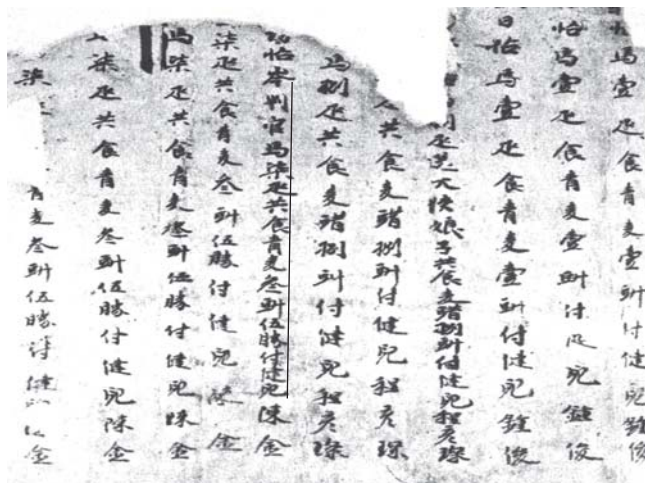 帖馬壹疋食青麦壹㪷付健児鍾俊
帖馬壹疋食青麦壹㪷付健児鍾俊
日帖馬壹疋食青麦壹㪷付健児鍾俊
疋送大使娘子共食麦䜺捌㪷付健児程彦琛
共食麦䜺捌㪷付健児程彦琛
馬捌疋共食麦䜺捌㪷付健児程彦琛
帖岑判官馬柒疋共食青麦叁㪷伍勝付健児陳金
柒疋共食青麦叁㪷伍勝付健児陳金
馬柒疋共食青麦叁㪷伍勝付健児陳金
柒疋共食青麦叁㪷伍勝付健児陳金
柒 青麦叁㪷伍勝付健 金